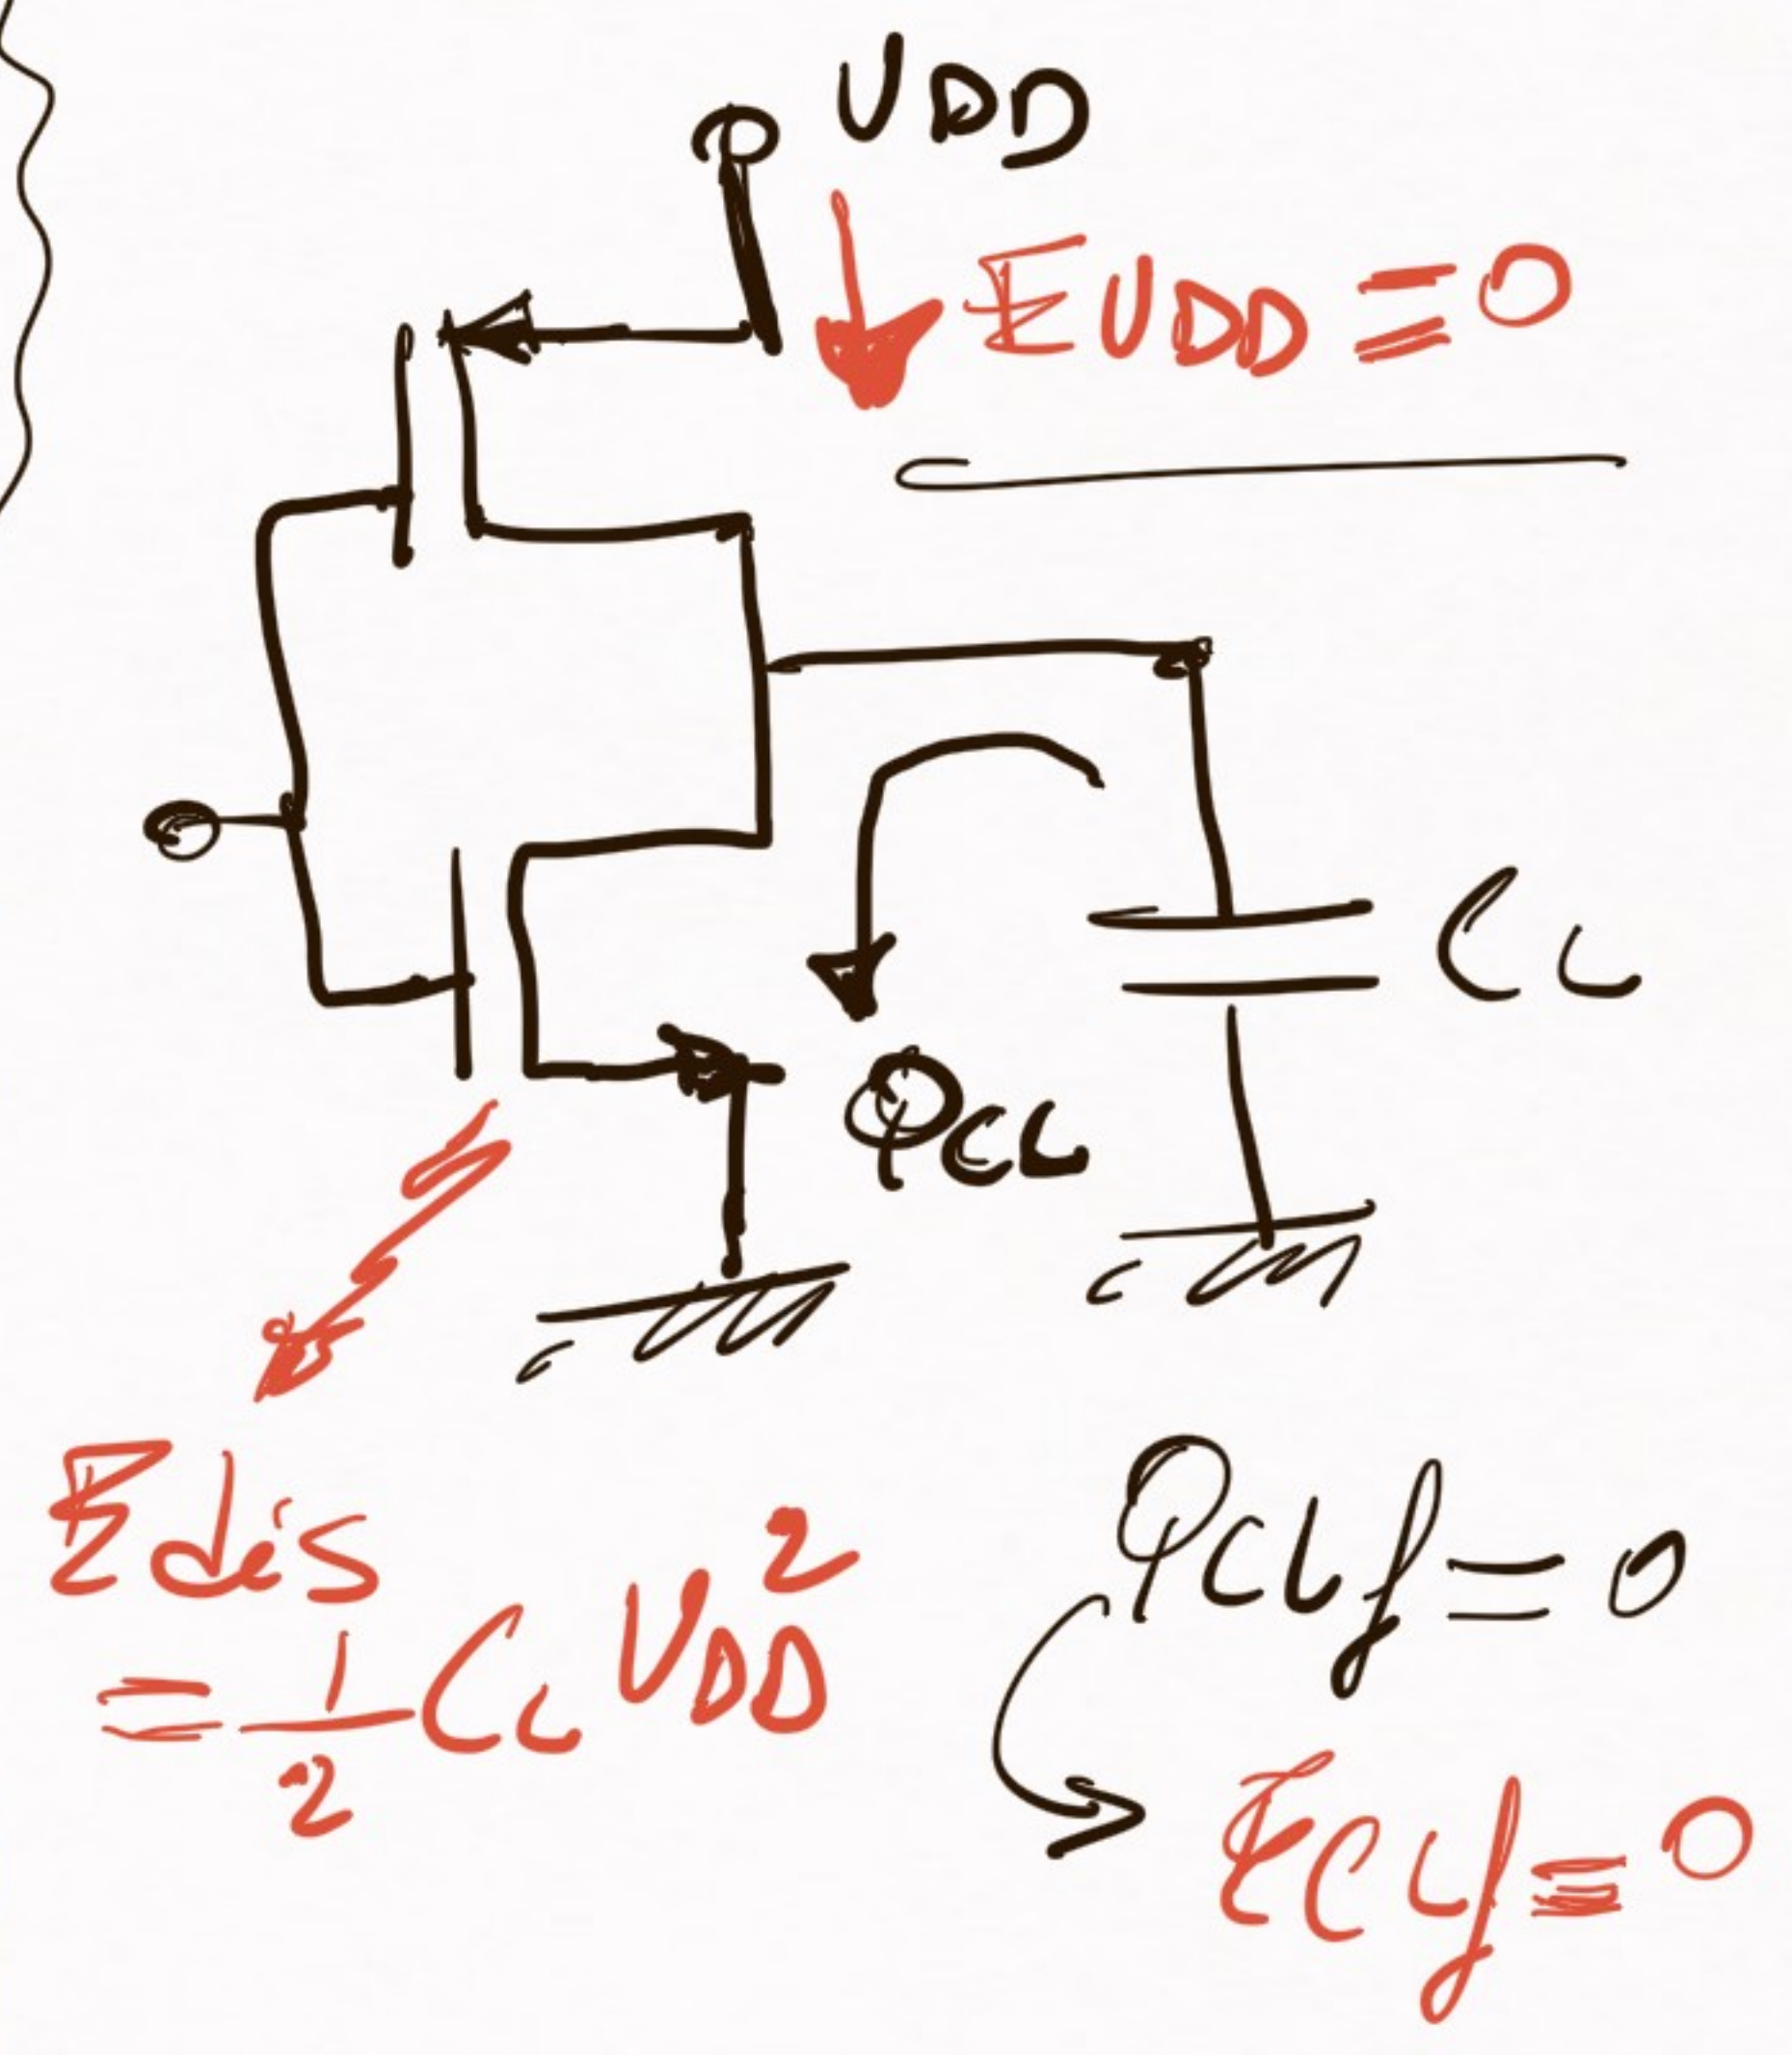 VDD
EVDD = 0
CL
QCL
Edis
= 1/2 CL VDD²
QCLf = 0
ECLf = 0